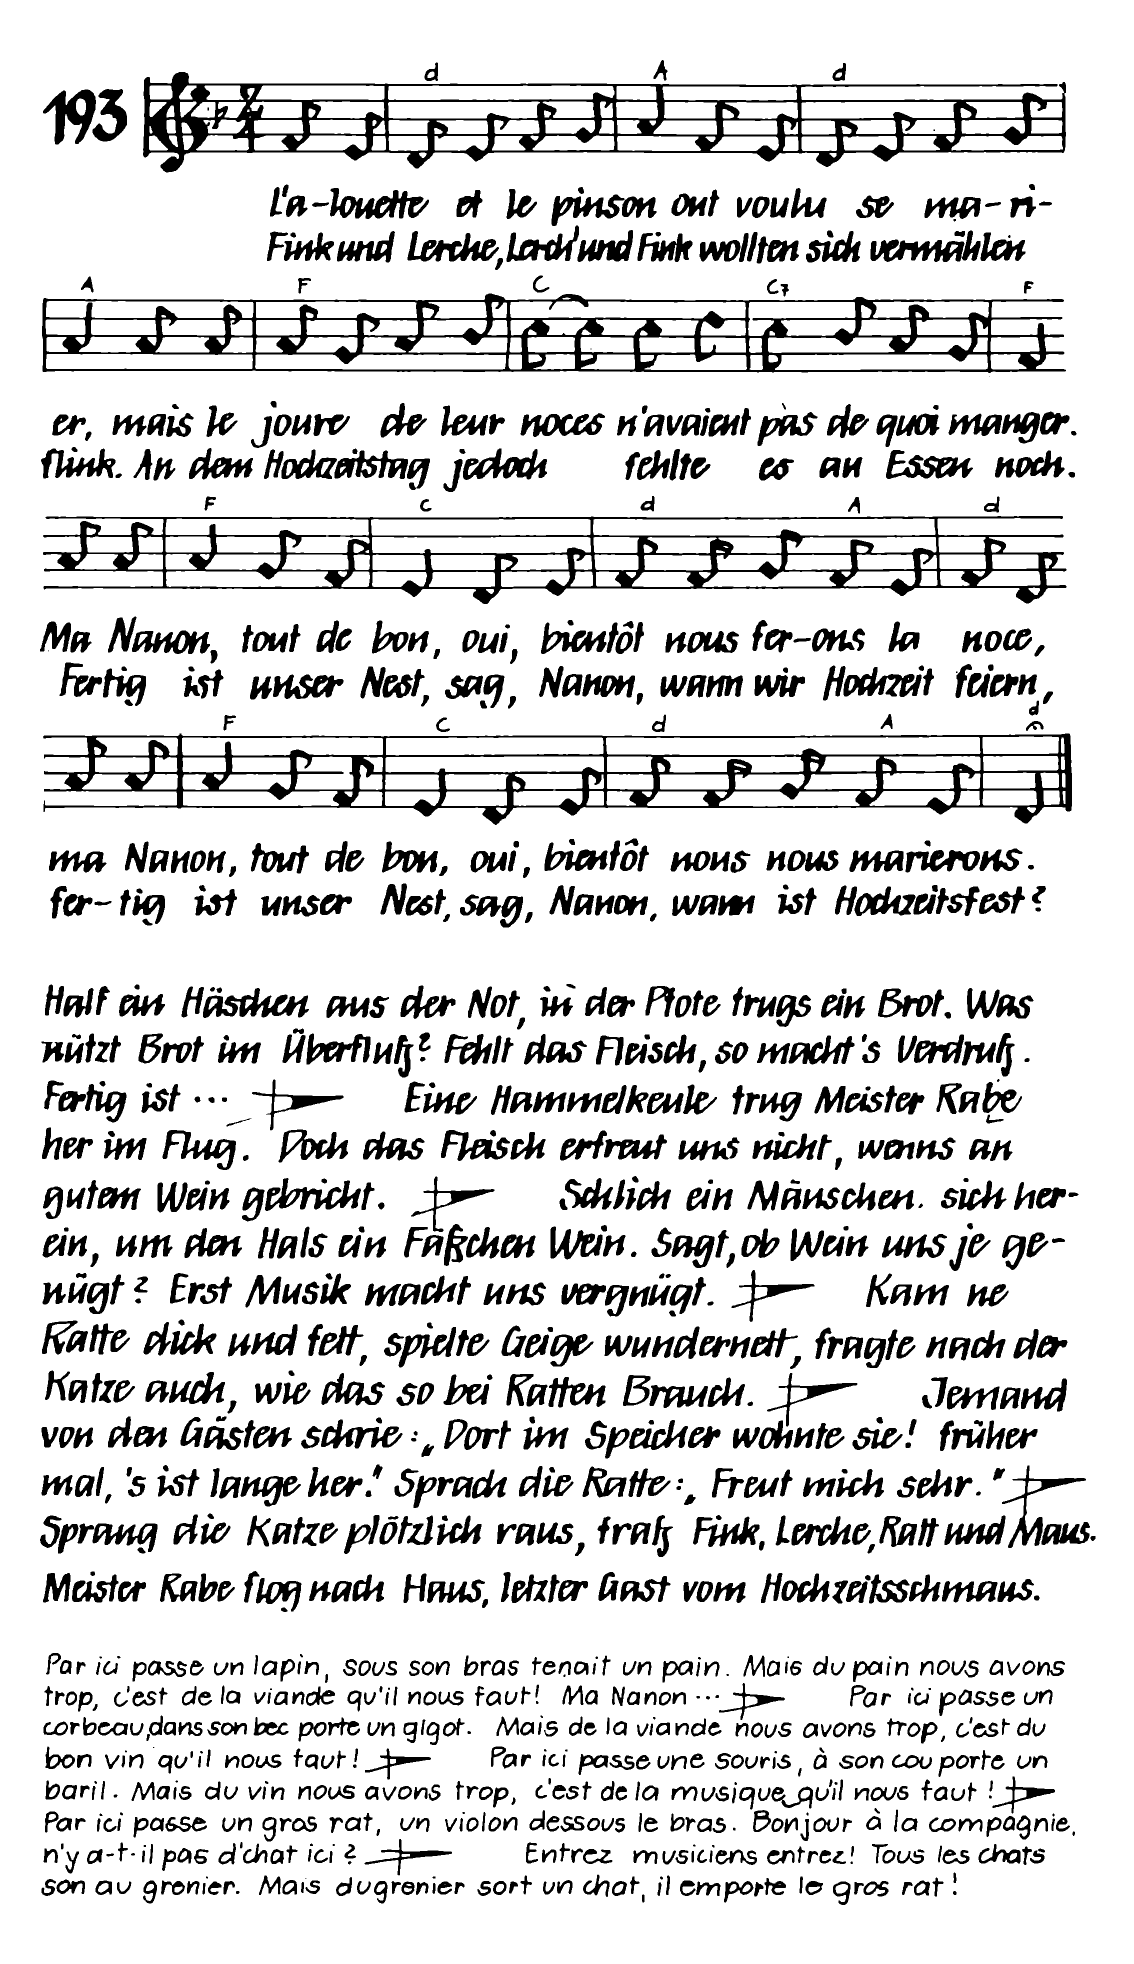 193
d A d
L'a-louette et le pinson ont voulu se ma-ri-
Fink und Lerche, Lerch' und Fink wollten sich vermählen
A F C C7 F
er, mais le joure de leur noces n'avaient pas de quoi manger.
flink. An dem Hochzeitstag jedoch fehlte es an Essen noch.
F C d A d
Ma Nanon, tout de bon, oui, bientôt nous fer-ons la noce,
Fertig ist unser Nest, sag, Nanon, wann wir Hochzeit feiern,
F C d A d
ma Nanon, tout de bon, oui, bientôt nous nous marierons.
fer-tig ist unser Nest, sag, Nanon, wann ist Hochzeitsfest?
Half ein Häschen aus der Not, in der Pfote trugs ein Brot. Was
nützt Brot im Überfluß? Fehlt das Fleisch, so macht's Verdruß.
Fertig ist ... Eine Hammelkeule trug Meister Rabe
her im Flug. Doch das Fleisch erfreut uns nicht, wenns an
gutem Wein gebricht. Schlich ein Mänschen. sich her-
ein, um den Hals ein Fäßchen Wein. Sagt, ob Wein uns je ge-
nügt? Erst Musik macht uns vergnügt. Kam ne
Ratte dick und fett, spielte Geige wundernett, fragte nach der
Katze auch, wie das so bei Ratten Brauch. Jemand
von den Gästen schrie: „Dort im Speicher wohnte sie! früher
mal, 's ist lange her." Sprach die Ratte: „Freut mich sehr."
Sprang die Katze plötzlich raus, fraß Fink, Lerche, Ratt und Maus.
Meister Rabe flog nach Haus, letzter Gast vom Hochzeitsschmaus.
Par ici passe un lapin, sous son bras tenait un pain. Mais du pain nous avons
trop, c'est de la viande qu'il nous faut! Ma Nanon ... Par ici passe un
corbeau, dans son bec porte un gigot. Mais de la viande nous avons trop, c'est du
bon vin qu'il nous faut! Par ici passe une souris, à son cou porte un
baril. Mais du vin nous avons trop, c'est de la musique qu'il nous faut!
Par ici passe un gros rat, un violon dessous le bras. Bonjour à la compagnie,
n'y a-t-il pas d'chat ici? Entrez musiciens entrez! Tous les chats
son au grenier. Mais du grenier sort un chat, il emporte le gros rat!